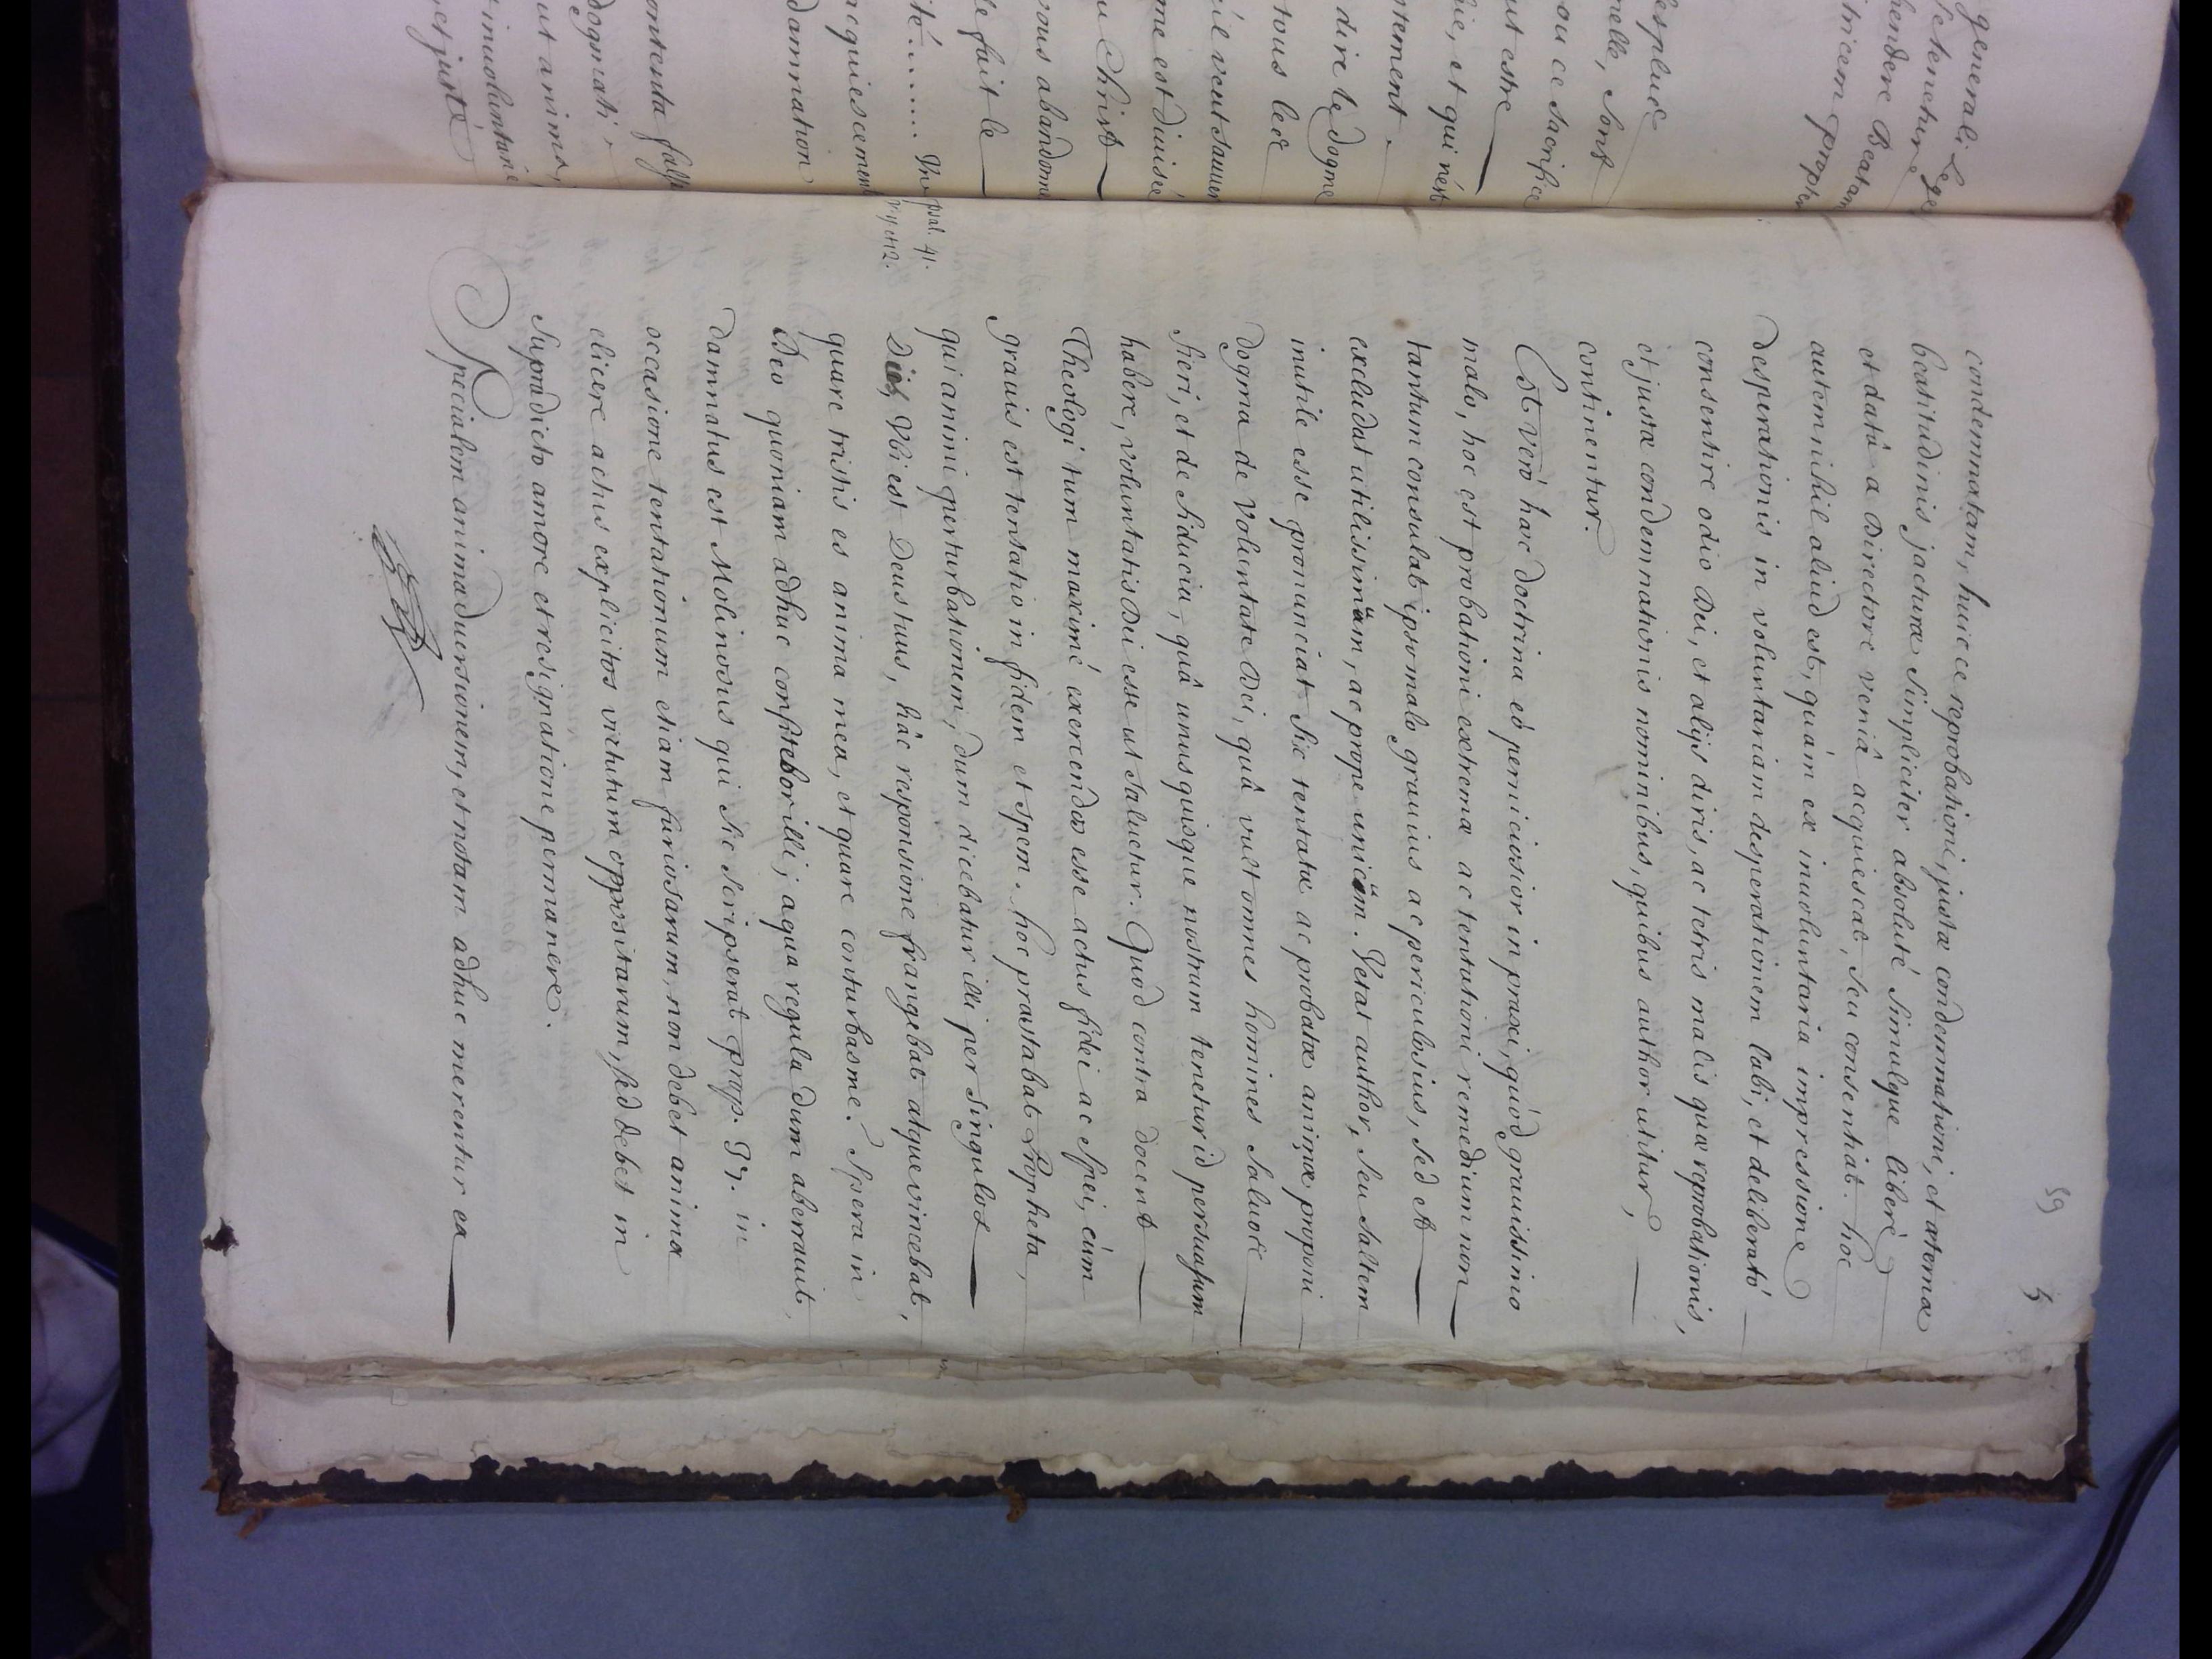 generali Lege
se tenetur
hendere Beatam
tricem propter
espluë
nelle, sont
ou ce sacrifice
ut estre
bie, et qui n'est
ptement.
dire le dogme
tous les
cié veut sauver
me est divisée
u Christ
vous abandonn
le fait le
ité ....... Vne
acquiescement
damnation
ontenta falso
dogmati,
ut anima,
involuntariè
et justé
59
condemnatam, huicce reprobationi, justæ condemnationi, et æternæ
beatitudinis jacturæ simpliciter absoluté simulque liberè
et datâ a Directore veniâ acquiescat, seu consentiat. hoc
autem nihil aliud est, quám ex involuntaria impressione
desperationis in voluntariam desperationem labi, et deliberató
consentire odio Dei, et alijs diris, ac tetris malis quæ reprobationis,
et justæ condemnationis nominibus, quibus author utitur,
continentur.
Est veró hæc doctrina eó perniciosior in praxi, quód gravissimo
malo, hoc est probationi extremæ ac tentationi remedium non
tantum consulat ipso malo gravius ac periculosius, sed et
excludat utilissimum, ac prope unicum. Vetat author, seu saltem
inutile esse pronunciat sic tentatæ ac probatæ animæ proponi
dogma de Voluntate Dei, quâ vult omnes homines saluos
fieri, et de fiducia, quâ unusquisque nostrum tenetur id persuasum
habere, voluntatis Dei esse ut salvetur. Quod contra docent
Theologi tum maximé exercendos esse actus fidei ac spei, cúm
gravis est tentatio in fidem et spem. hoc præstabat Propheta,
psal. 41.
v. 4 et 12.
qui animi perturbationem, dum dicebatur illi per singulos
Dies, Vbi est Deus tuus, hâc responsione frangebat atque vincebat,
quare tristis es anima mea, et quare conturbas me? Spera in
Deo quoniam adhuc confitebor illi; a qua regula dum aberravit,
damnatus est Molinosus qui sic scripserat prop. 37. in
occasione tentationum etiam furiosarum, non debet anima
elicere actus explicitos virtutum oppositarum, sed debet in
supradicto amore et resignatione permanere.
Specialem animadversionem, et notam adhuc merentur ea